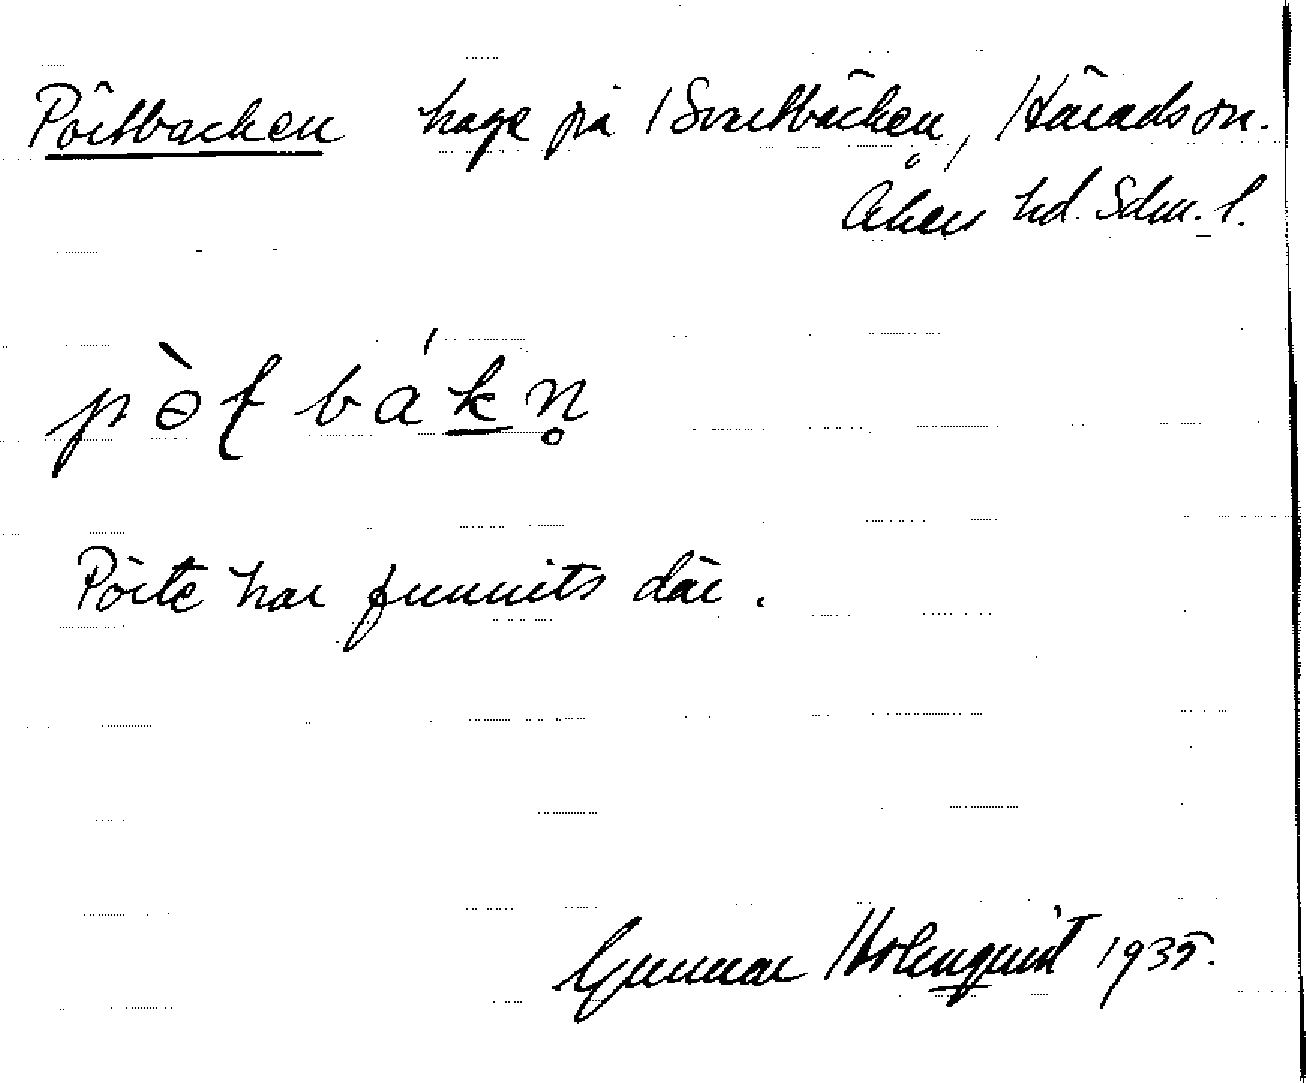 Pörtbacken hage på Svartbäcken, Härads sn.
Åkers hd. Sdm. l.
pə̀ʈbákn̥
Pörte har funnits där.
Gunnar Holmquist 1935.